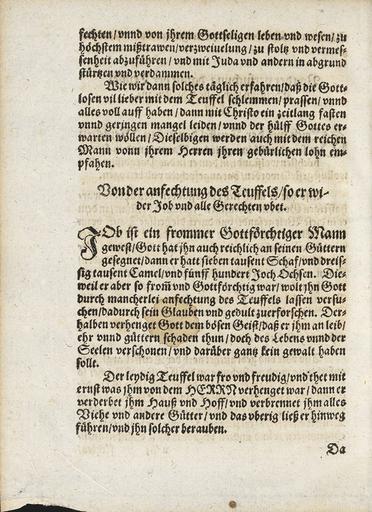 fechten/vnnd von jhrem Gottseligen leben vnd wesen/zu
höchstem mißtrawen/verzweiuelung/zu stoltz vnd vermes-
senheit abzuführen/vnd mit Juda vnd andern in abgrund
stürtzen vnd verdammen.
Wie wir dann solches täglich erfahren/daß die Gott-
losen vil lieber mit dem Teuffel schlemmen/prassen/vnnd
alles voll auff haben/dann mit Christo ein zeitlang fasten
vnnd geringen mangel leiden/vnnd der hülff Gottes er-
warten wöllen/Dieselbigen werden auch mit dem reichen
Mann vonn jhrem Herren jhren gebürlichen lohn em-
pfahen.
Von der anfechtung des Teuffels/so er wi-
der Job vnd alle Gerechten vbet.
JOb ist ein frommer Gottförchtiger Mann
gewest/Gott hat jhn auch reichlich an seinen Güttern
gesegnet/dann er hatt siben tausent Schaf/vnd dreis-
sig tausent Camel/vnd fünff hundert Joch Ochsen. Die-
weil er aber so from̃ vnd Gottförchtig war/wolt jhn Gott
durch mancherlei anfechtung des Teuffels lassen versu-
chen/dadurch sein Glauben vnd gedult zuerforschen. Der-
halben verhenget Gott dem bösen Geist/daß er jhm an leib/
ehr vnnd güttern schaden thun/doch des Lebens vnnd der
Seelen verschonen/vnd darüber gantz kein gewalt haben
sollt.
Der leydig Teuffel war fro vnd freudig/vnd thet mit
ernst was jhm von dem HERRN verhenget war/dann er
verderbet jhm Hauß vnd Hoff/vnd verbrennet jhm alles
Viche vnd andere Gütter/vnd das vberig ließ er hinweg
führen/vnd jhn solcher berauben.
Da